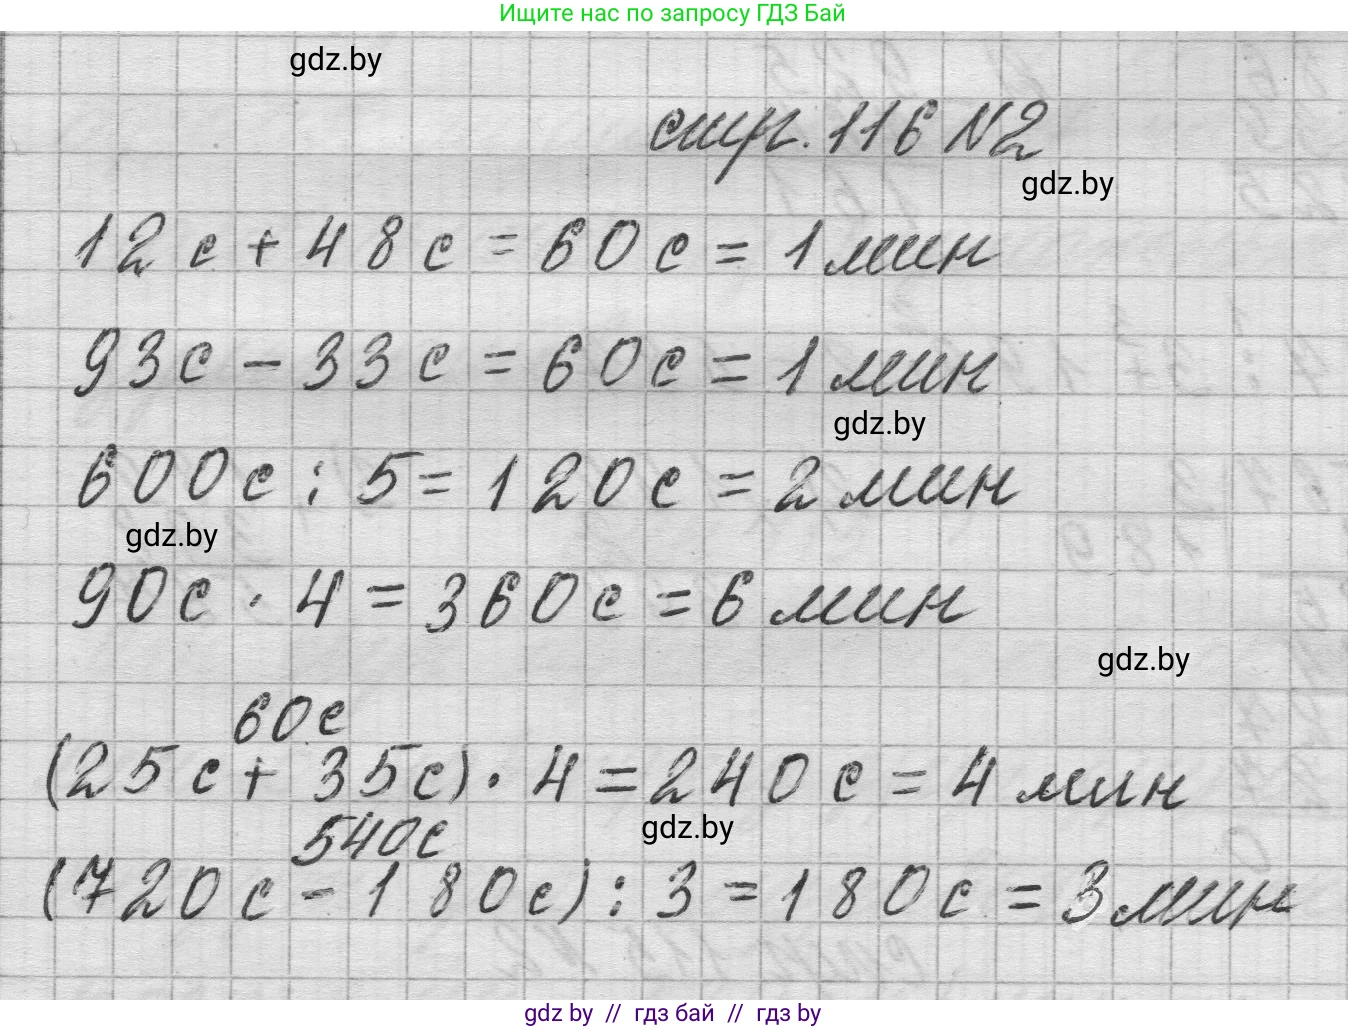 Ищите нас по запросу ГДЗ Бай
gdz.by
стр. 116 N2
gdz.by
12 с + 48 с = 60 с = 1 мин
93с - 33 с = 60 с = 1 мин
gdz.by
600с : 5 = 120 с = 2 мин
gdz.by
90с · 4 = 360 с = 6 мин
gdz.by
60с
(25 с + 35с) · 4 = 240 с = 4 мин
540с
gdz.by
(720 с - 180с) : 3 = 180 с = 3 мин
gdz by // гдз бай // гдз by